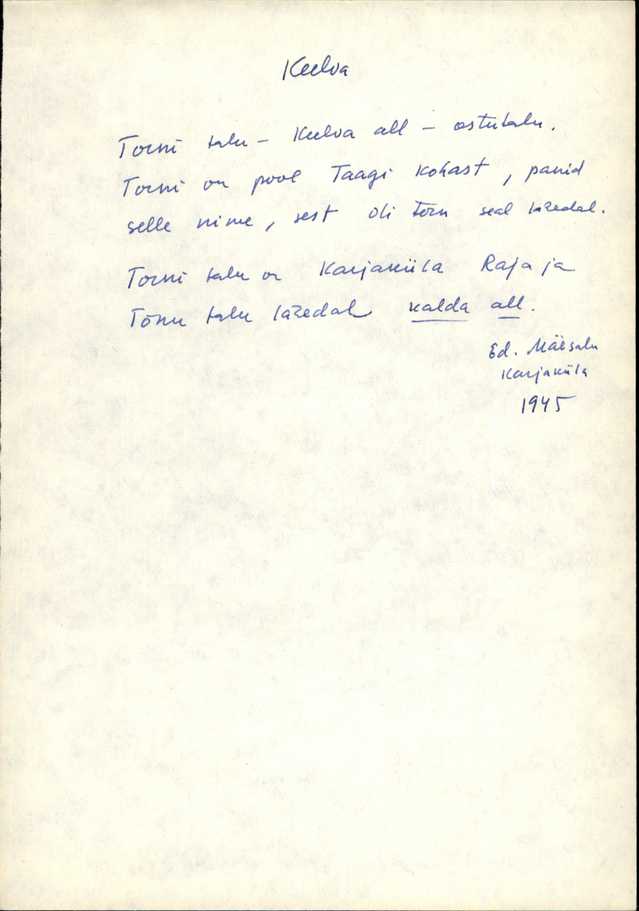 Keelva
Torni talu – Keelva all – ostutalu.
Torni on pool Taagi kohast, panid
selle nime, sest oli torn seal lähedal.
Torni talu on Karjaküla Raja ja
Tõnu talu lähedal kalda all.
Ed. Mäesalu
Karjaküla
1945